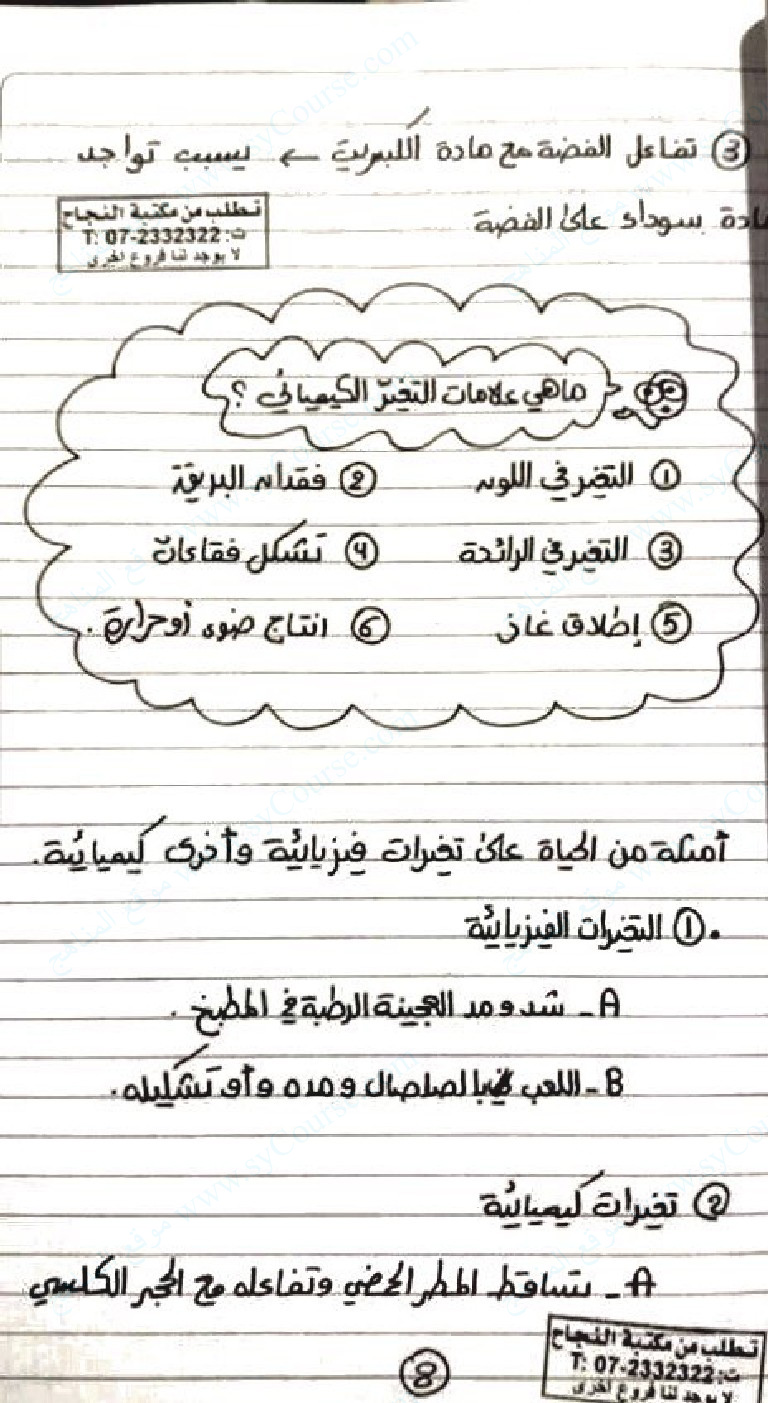 ③ تفاعل الفضة مع مادة الكبريت ← يسبب تواجد
مادة سوداء على الفضة
تطلب من مكتبة النجاح
ت: T: 07-2332322
لا يوجد لنا فروع اخرى
ماهي علامات التغير الكيميائي ؟
① التغير في اللون ② فقدان البريق
③ التغير في الرائحة ④ تشكل فقاعات
⑤ إطلاق غاز ⑥ انتاج ضوء أو حرارة .
أمثلة من الحياة على تغيرات فيزيائية وأخرى كيميائية.
• ① التغيرات الفيزيائية
A - شد و مد العجينة الرطبة في المطبخ .
B - اللعب بالصلصال و مده و أو تشكيله .
② تغيرات كيميائية
A - تساقط المطر الحمضي وتفاعله مع الحجر الكلسي
8
تطلب من مكتبة النجاح
ت: T: 07-2332322
لا يوجد لنا فروع اخرى
www.syCourse.com موقع المناهج